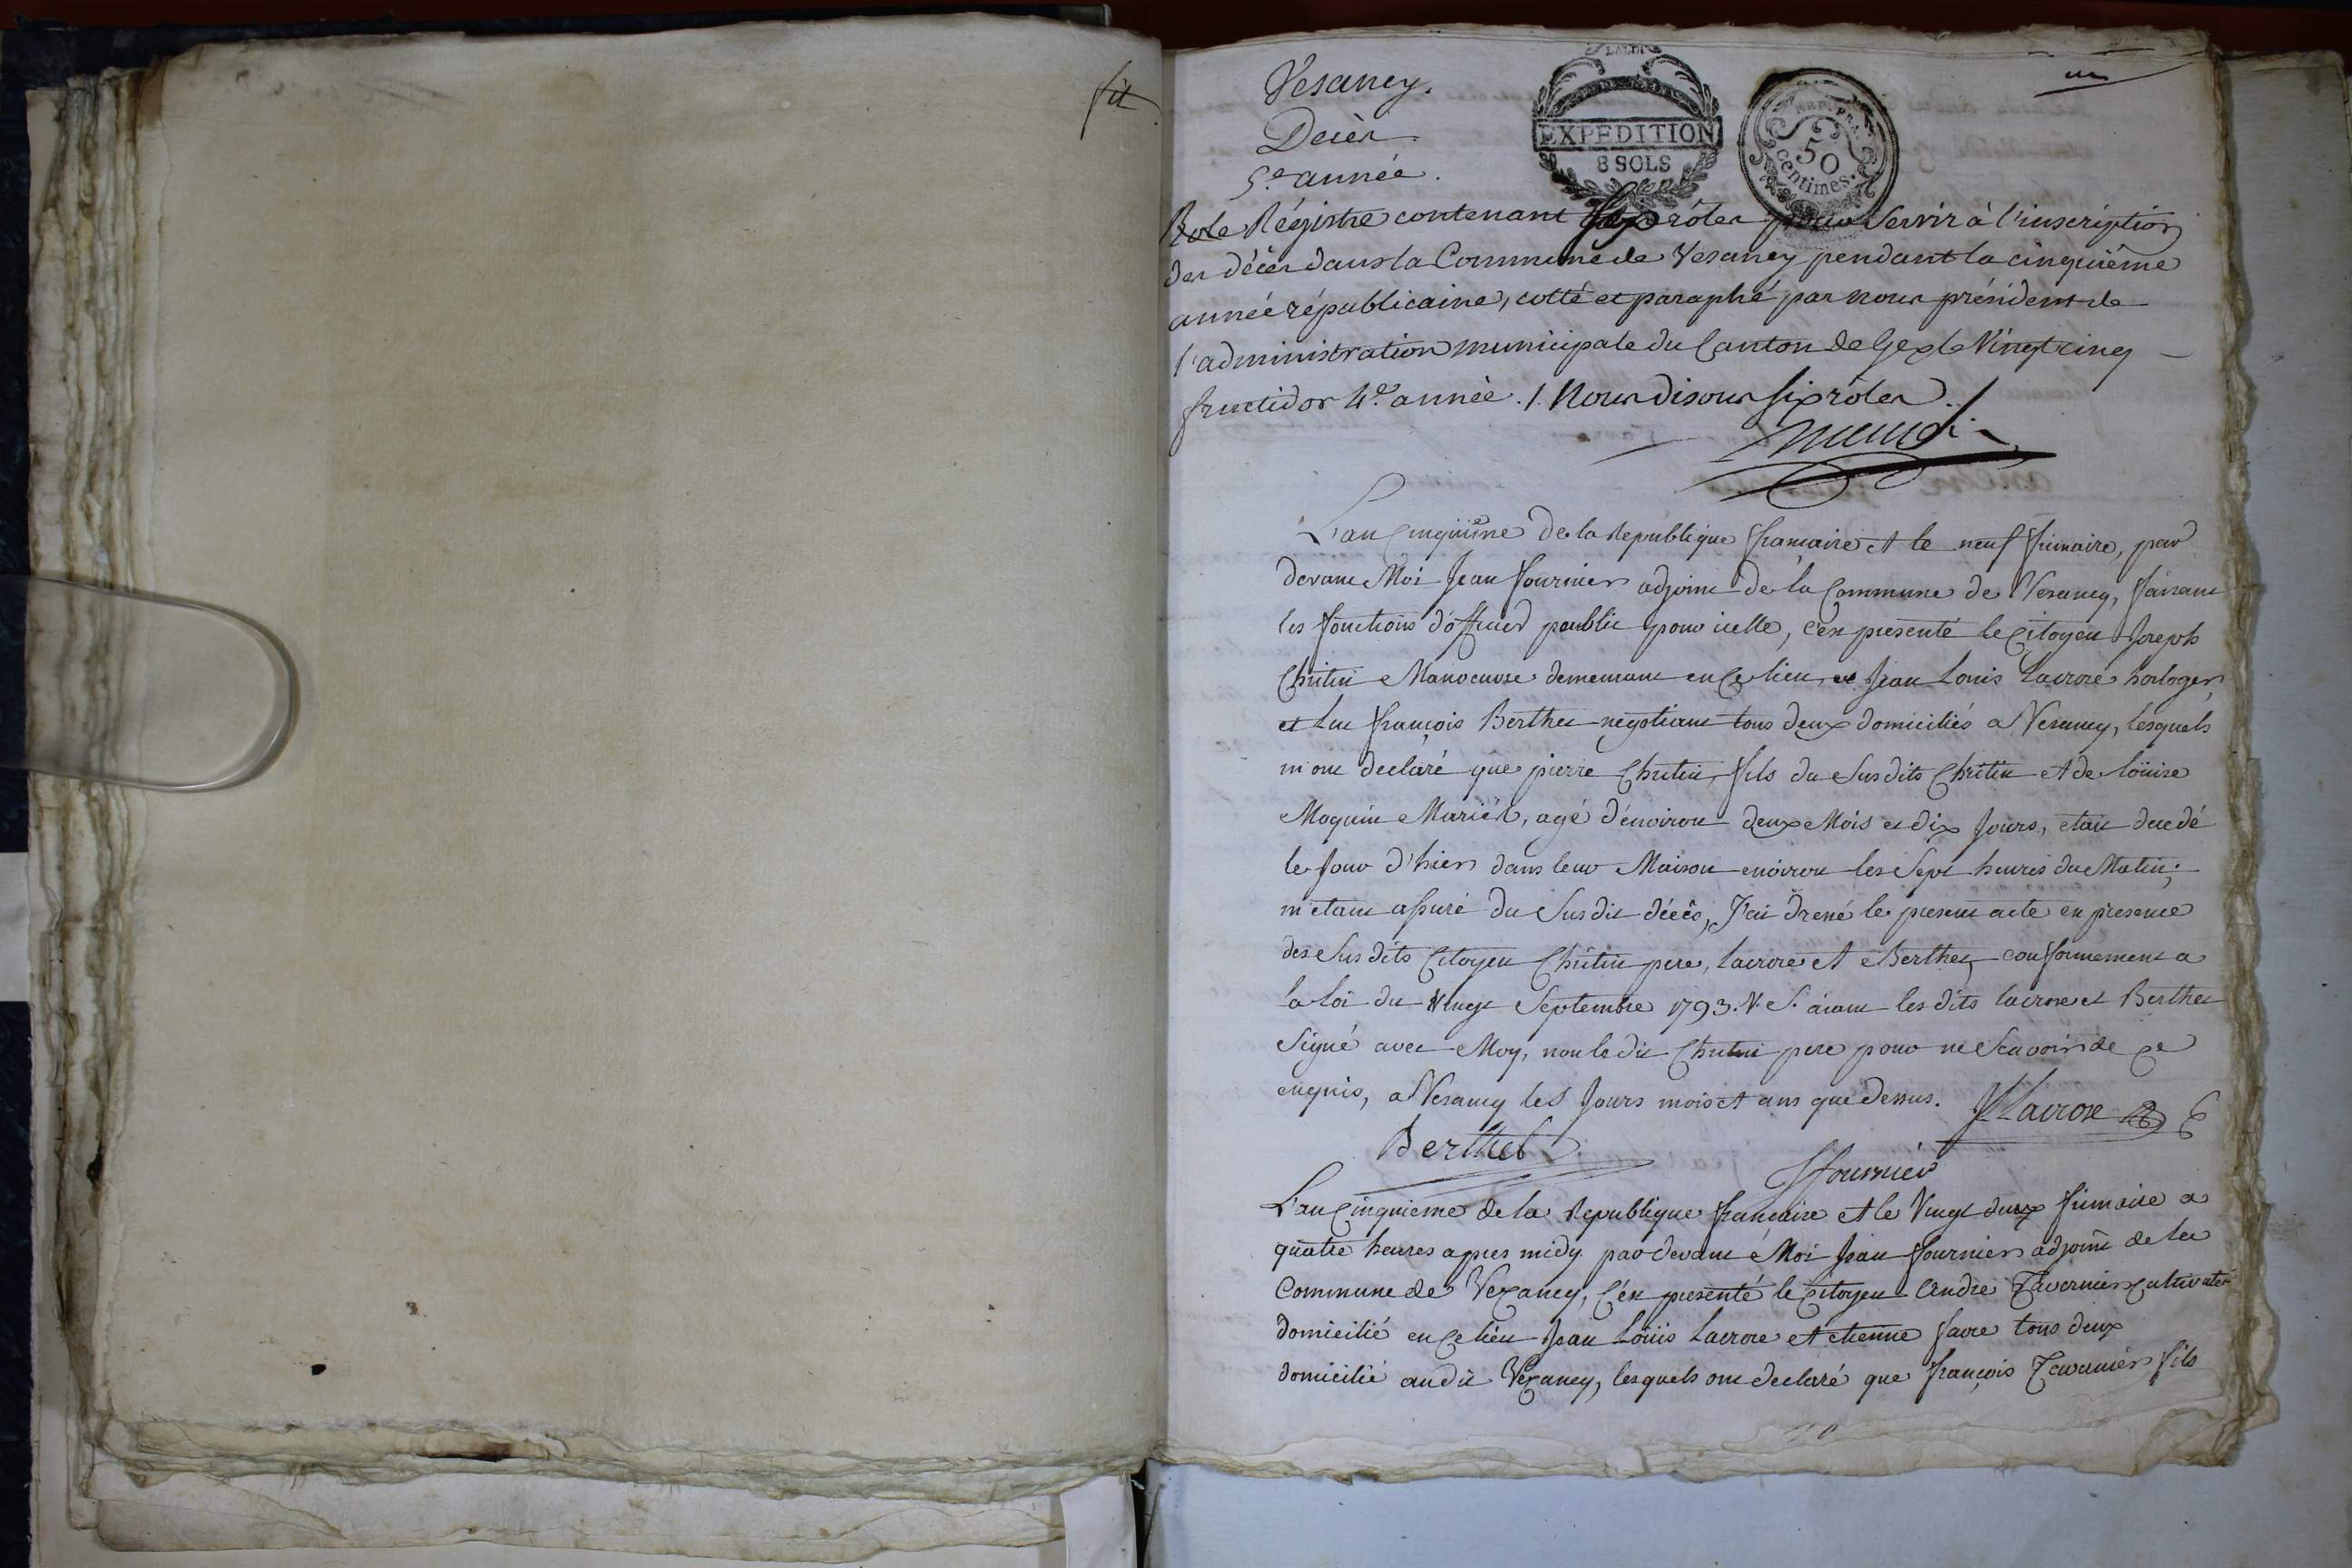 six
un
Vesancy.
LA LOI
EXPEDITION
8 SOLS
REP. FRA.
50
centimes.
Décès.
5.e année.
Role Régistre contenant six rôles pour servir à l'inscription
des décès dans la Commune de Vesancy pendant la cinquième
année républicaine, cotté et paraphé par nous président de
l'administration municipale du Canton de Gex le Vingt cinq
fructidor 4.e année. /. Nous disons six rôles ./.
L'an Cinquiême de la Republique francaise et le neuf frimaire, par
devant Moi Jean fournier adjoint de la Commune de Vesancy, faisant
les fonctions d'officier public pour icelle, c'est presenté le Citoyen Joseph
Chritin Manoeuvre demeurant en Ce lieu, et Jean Louis Lacroix horloger,
et Luc françois Berthet negotiant tous deux domiciliés a Vesancy, lesquels
m'ont declaré que pierre Chritin, fils du Susdits Chritin et de Loüise
Moquin Mariés, agé d'environ deux Mois et dix Jours, etait decedé
le Jour d'hier dans leur Maison environ les Sept heures du Matin;
m'etant assuré du Susdit décês, J'ai dressé le present acte en presence
des Susdits Citoyen Chritin pere, Lacroix et Berthet, conformement a
la loi du Vingt Septembre 1793. V. S. aiant les dits Lacroix et Berthet
Signé avec Moy, non le dit Chritin pere pour ne Scavoir de ce
enquis, a Vesancy les Jours mois et ans que dessus. JL Lacroix
Berthet
J fournier
L'an Cinquieme de la Republique francaise et le Vingt deux frimaire a
quatre heures apres midy par devant Moi Jean fournier adjoint de la
Commune de Vezancy, C'est presenté le Citoyen André Tavernier Cultivateur
domicilié en Ce lieu Jean Loüis Lacroix et etienne favre tous deux
domicilié au dit Vezancy, lesquels ont declaré que françois Tavernier fils